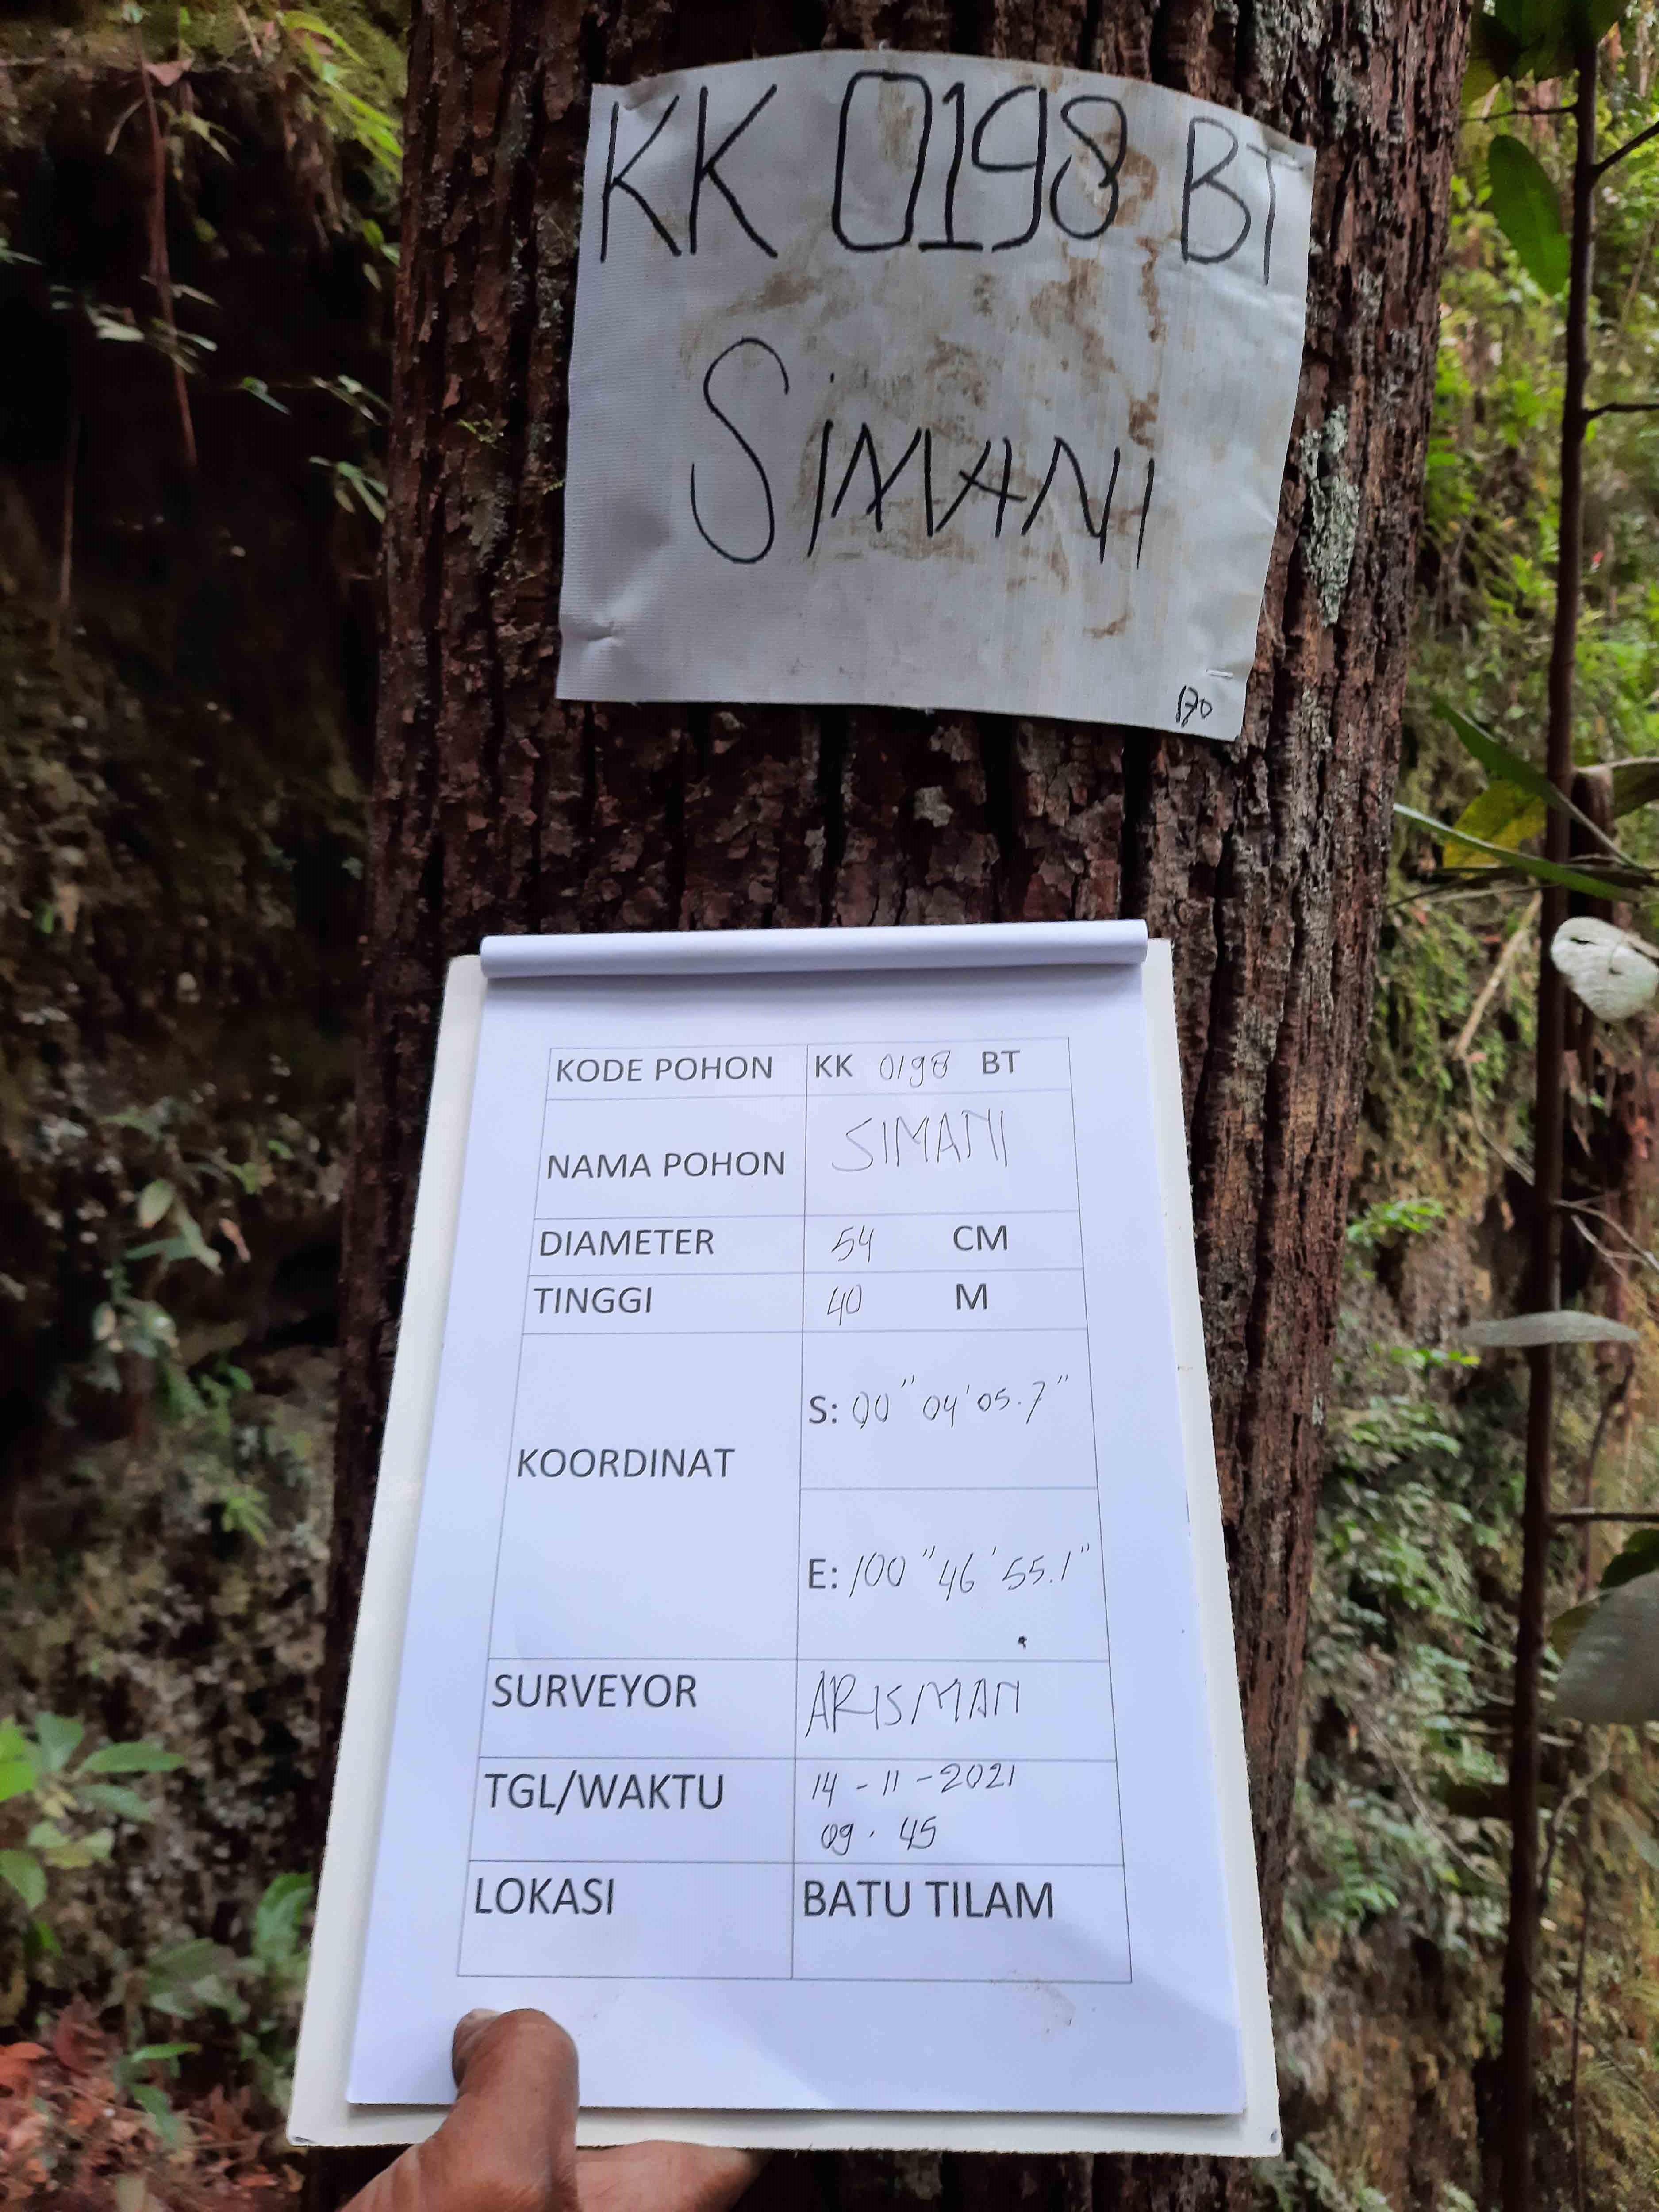 KK 0198 BT
SiMANI
KODE POHON KK 0198 BT
NAMA POHON SIMANI
DIAMETER 54 CM
TINGGI 40 M
KOORDINAT
S: 00" 04' 05.7"
E: 100" 46' 55.1"
SURVEYOR ARISMAN
TGL/WAKTU 14-11-2021
09.45
LOKASI BATU TILAM